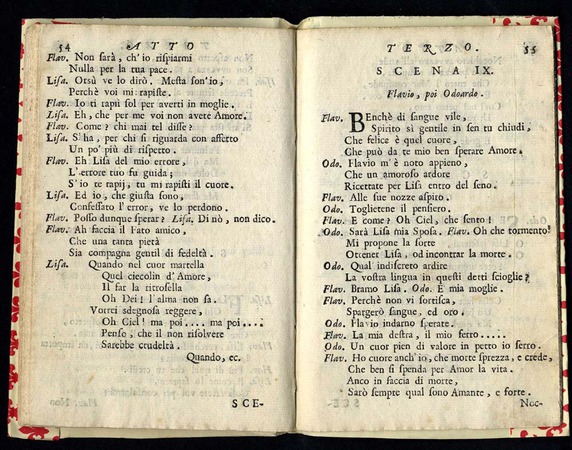 54 ATTO
Flav. Non sarà, ch'io rispiarmi
Nulla per la tua pace.
Lisa. Orsù ve lo dirò. Mesta son'io,
Perchè voi mi rapiste.
Flav. Io ti rapii sol per averti in moglie.
Lisa. Eh, che per me voi non avete Amore.
Flav. Come? chi mai tel disse?
Lisa. S'ha, per chi si riguarda con affetto
Un po' più di rispetto.
Flav. Eh Lisa del mio errore,
L'errore tuo fu guida;
S'io te rapij, tu mi rapisti il cuore.
Lisa. Ed io, che giusta sono,
Confessato l'error, ve lo perdono.
Flav. Posso dunque sperar? Lisa. Di nò, non dico.
Flav. Ah faccia il Fato amico,
Che una tanta pierà
Sia compagna gentil di fedeltà.
Lisa. Quando nel cuor martella
Quel ciecolin d'Amore,
Il far la ritrosella
Oh Dei! l'alma non sa.
Vorrei sdegnosa reggere,
Oh Ciel! ma poi.... ma poi....
Penso, che il non risolvere
Sarebbe crudeltà.
Quando, ec.
SCE-
TERZO. 55
SCENA IX.
Flavio, poi Odoardo.
Flav. Benchè di sangue vile,
Spirito sì gentile in sen tu chiudi,
Che felice è quel cuore,
Che può da te mio ben sperare Amore.
Odo. Flavio m'è noto appieno,
Che un amoroso ardore
Ricettate per Lisa entro del seno.
Flav. Alle sue nozze aspiro.
Odo. Toglietene il pensiero.
Flav. E come? Oh Ciel, che sento!
Odo. Sarà Lisa mia Sposa. Flav. Oh che tormento!
Mi propone la sorte
Ottener Lisa, od incontrar la morte.
Odo. Qual'indiscreto ardire
La vostra lingua in questi detti scioglie?
Flav. Bramo Lisa. Odo. E mia moglie.
Flav. Perchè non vi sortisca,
Spargerò sangue, ed oro.
Odo. Flavio indarno sperate.
Flav. La mia destra, il mio ferro.....
Odo. Un cuor pien di valore in petto io ferro.
Flav. Ho cuore anch'io, che morte sprezza, e crede,
Che ben si spenda per Amor la vita.
Anco in faccia di morte,
Sarò sempre qual sono Amante, e forte.
Noc-